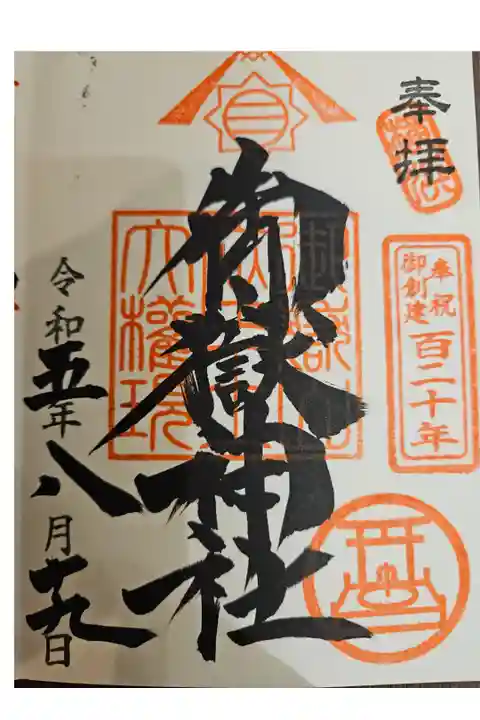 奉拝
奉祝
御創建
百二十年
御嶽神社
令和五年八月十九日
大権現